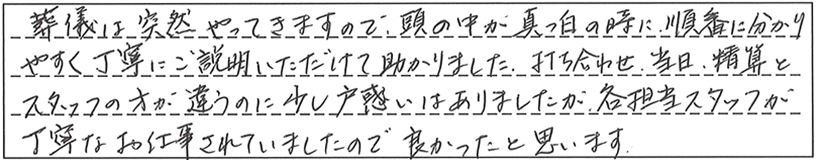 葬儀は突然やってきますので、頭の中が真っ白の時に、順番に分かり
やすく丁寧にご説明いただけて助かりました。打ち合わせ、当日、精算と
スタッフの方が違うのに少し戸惑いはありましたが、各担当スタッフが
丁寧なお仕事されていましたので良かったと思います。